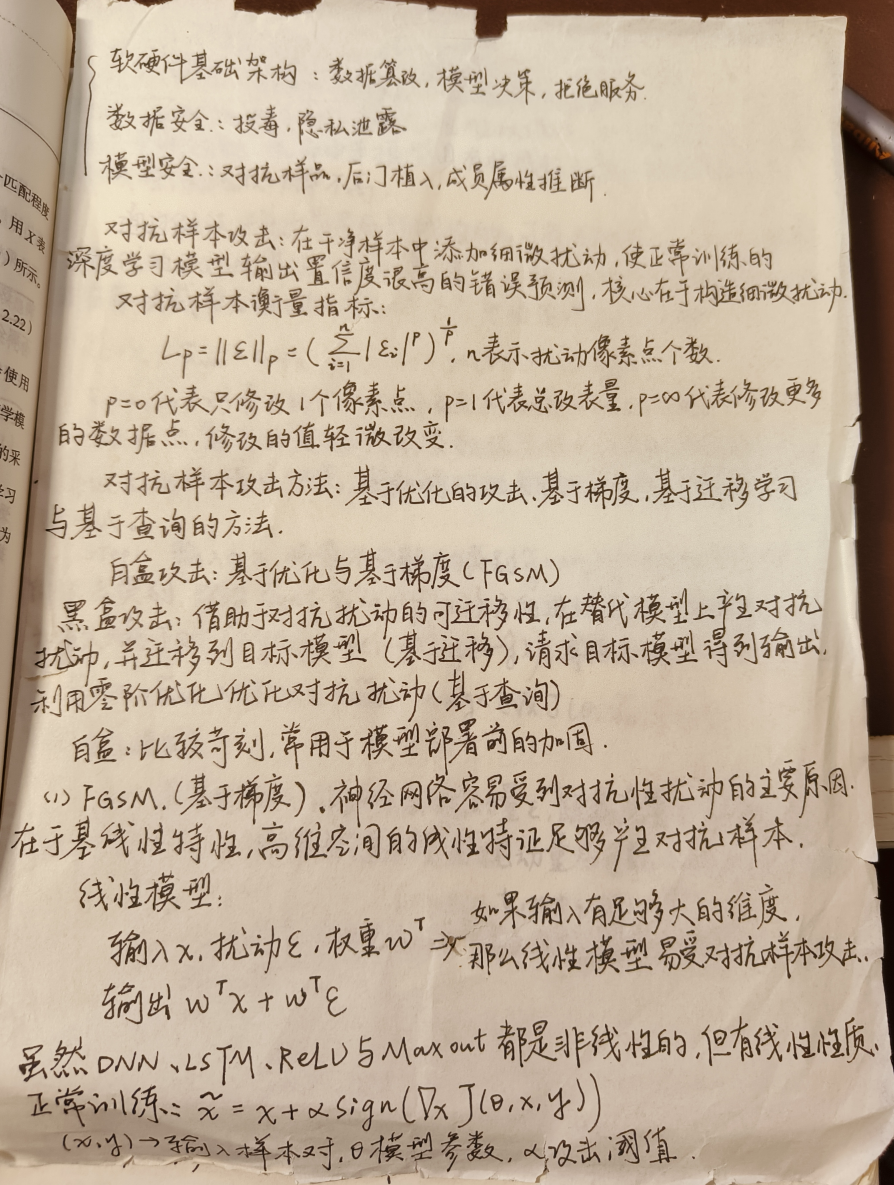 软硬件基础架构：数据篡改，模型决策，拒绝服务.
数据安全：投毒，隐私泄露
模型安全：对抗样品、后门植入，成员属性推断.
对抗样本攻击：在干净样本中添加细微扰动，使正常训练的
深度学习模型输出置信度很高的错误预测，核心在于构造细微扰动.
对抗样本衡量指标：
Lp=||ε||p=(∑_{i=1}^{n}|εi|^p)^{1/p}，n表示扰动像素点个数.
p=0代表只修改1个像素点，p=1代表总改表量，p=∞代表修改更多
的数据点，修改的值轻微改变.
对抗样本攻击方法：基于优化的攻击、基于梯度，基于迁移学习
与基于查询的方法.
白盒攻击：基于优化与基于梯度(FGSM)
黑盒攻击：借助于对抗扰动的可迁移性，在替代模型上产生对抗
扰动，并迁移到目标模型（基于迁移），请求目标模型得到输出，
利用零阶优化优化对抗扰动(基于查询)
白盒：比较苛刻，常用于模型部署前的加固.
(1) FGSM.(基于梯度).神经网络容易受到对抗性扰动的主要原因
在于基线性特性，高维空间的线性特征足够产生对抗样本.
线性模型：
输入x，扰动ε，权重w^T ⇒
输出 w^T x + w^T ε
如果输入有足够多大的维度，
那么线性模型易受对抗样本攻击.
虽然DNN、LSTM、ReLU与Maxout都是非线性的，但有线性性质.
正常训练：x̃ = x+αsign(∇x J(θ,x,y))
(x,y)→输入样本对，θ模型参数，α攻击阈值.
匹配程度
用X表
)所示。
2.22)
使用
学模
的采
学习
为